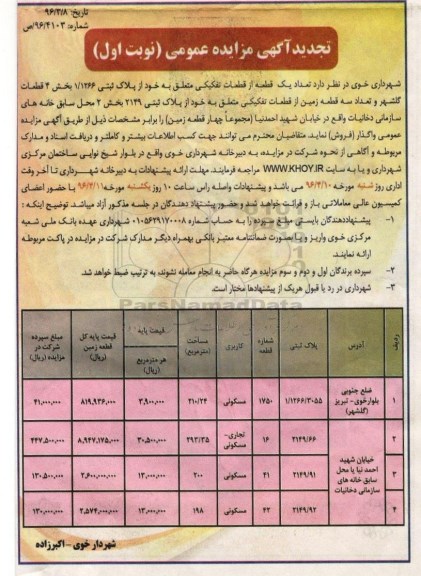 تاریخ: ۹۶/۳/۸
شماره: ۹۶/۴۱۰۳/ص
تجدیدآگهی مزایده عمومی (نوبت اول)
شهرداری خوی در نظر دارد تعداد یک قطعه از قطعات تفکیکی متعلق به خود از پلاک ثبتی ۱/۱۲۶۶ بخش ۴ قطعات
گلشهر و تعداد سه قطعه زمین از قطعات تفکیکی متعلق به خود از پلاک ثبتی ۲۱۴۹ بخش ۲ محل سابق خانه های
سازمانی دخانیات واقع در خیابان شهید احمدنیا (مجموعاً چهار قطعه زمین) را برابر مشخصات ذیل از طریق آگهی مزایده
عمومی واگذار (فروش) نماید. متقاضیان محترم می توانند جهت کسب اطلاعات بیشتر و کاملتر و دریافت اسناد و مدارک
مربوطه و آگاهی از نحوه شرکت در مزایده، به دبیرخانه شهرداری خوی واقع در بلوار شیخ نوایی ساختمان مرکزی
شهرداری و یا به سایت WWW.KHOY.IR مراجعه فرمایند. مهلت ارائه پیشنهادات به دبیرخانه شهرداری تا آخر وقت
اداری روز شنبه مورخه ۹۶/۴/۱۰ می باشد و پیشنهادات واصله راس ساعت ۱۰ روز یکشنبه مورخه ۹۶/۴/۱۱ با حضور اعضای
کمیسیون عالی معاملاتی باز و قرائت خواهد شد و حضور پیشنهاد دهندگان در جلسه مذکور آزاد میباشد. توضیح اینکه :
۱- پیشنهاددهندگان بایستی مبلغ سپرده را به حساب شماره ۰۱۰۵۶۴۹۱۷۰۰۸ شهرداری عهده بانک ملی شعبه
مرکزی خوی واریز و یا بصورت ضمانتنامه معتبر بانکی بهمراه دیگر مدارک شرکت در مزایده در پاکت مربوطه
ارائه نمایند.
۲- سپرده برندگان اول و دوم و سوم مزایده هرگاه حاضر به انجام معامله نشوند، به ترتیب ضبط خواهد شد.
۳- شهرداری در رد یا قبول هریک از پیشنهادها مختار است.
ParsNamadData
ردیف آدرس پلاک ثبتی شماره قطعه کاربری مساحت (مترمربع) قیمت پایه هر مترمربع (ریال) قیمت پایه کل قطعه زمین (ریال) مبلغ سپرده شرکت در مزایده (ریال)
۱ ضلع جنوبی بلوارخوی- تبریز (گلشهر) ۱/۱۲۶۶/۳۰۵۵ ۱۷۵۰ مسکونی ۲۱۰/۲۴ ۳,۹۰۰,۰۰۰ ۸۱۹,۹۳۶,۰۰۰ ۴۱,۰۰۰,۰۰۰
خیابان شهید احمد نیا یا محل سابق خانه های سازمانی دخانیات
۲ ۲۱۴۹/۶۶ ۱۶ تجاری- مسکونی ۲۹۳/۳۵ ۳۰,۵۰۰,۰۰۰ ۸,۹۴۷,۱۷۵,۰۰۰ ۴۴۷,۵۰۰,۰۰۰
۳ ۲۱۴۹/۹۱ ۴۱ مسکونی ۲۰۰ ۱۳,۰۰۰,۰۰۰ ۲,۶۰۰,۰۰۰,۰۰۰ ۱۳۰,۵۰۰,۰۰۰
۴ ۲۱۴۹/۹۲ ۴۲ مسکونی ۱۹۸ ۱۳,۰۰۰,۰۰۰ ۲,۵۷۴,۰۰۰,۰۰۰ ۱۳۰,۰۰۰,۰۰۰
شهردار خوی - اکبرزاده